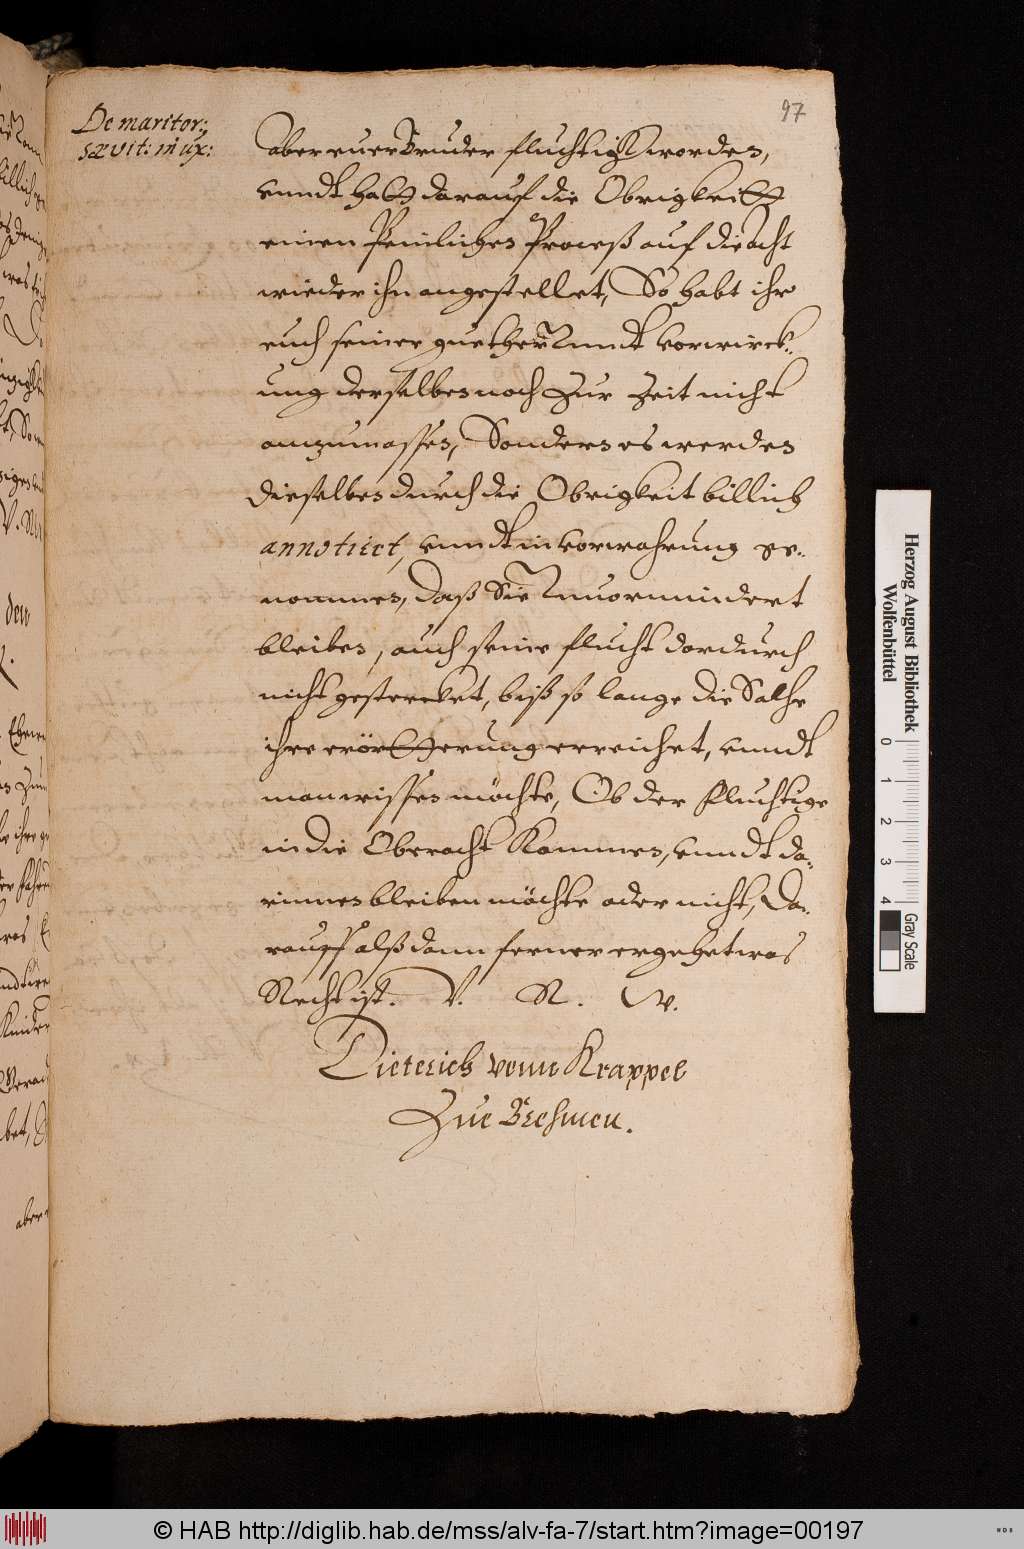 97
De maritor:
sævit: in ux:
aber euer Bruder fluchtigk worden,
unndt hatt darauf die Obrigkeitt
einen Peinlichen Proceß auf die acht
wieder ihn angestellet, So habt ihr
euch seiner guether unndt vorwirck-
ung derselben noch zur Zeit nicht
anzumassen, Sondern es werden
dieselben durch die Obrigkeit billich
annotiret, unndt in vorwahrung ge-
nommen, daß Sie unvormindert
bleiben, auch seine flucht dardurch
nicht gestercket, biß so lange die Sache
ihre erörtterung erreichet, unndt
man wissen möchte, Ob der fluchtige
in die Oberacht Kommen, unndt da-
rinnen bleiben möchte oder nicht, Da-
rauff alß dann ferner ergehet was
Recht ist. V. R. W.
Dieterich vonn Krappel
Zue Brehmen.
aber
Herzog August Bibliothek
Wolfenbüttel
0 1 2 3 4
Gray Scale
© HAB http://diglib.hab.de/mss/alv-fa-7/start.htm?image=00197